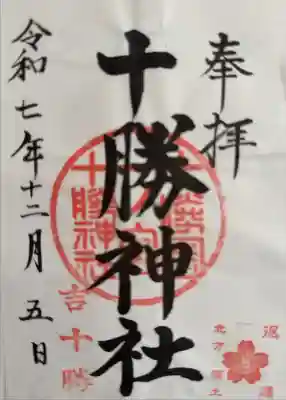 奉拝
十勝神社
十勝神社
吉十勝
令和七年十二月五日